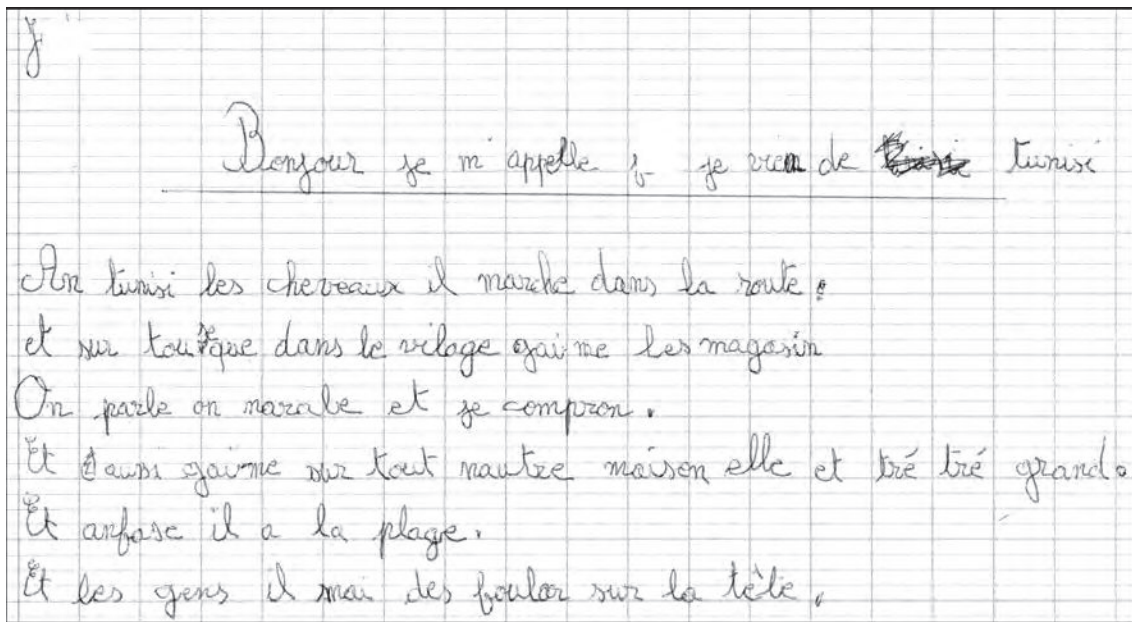 j
Bonjour je m'appelle j je vien de tunisi
An tunisi les cheveaux il marche dans la route.
et sur tout que dans le vilage gaime les magasin
On parle on narabe et je compron.
Et aussi gaime sur tout nautre maison elle et tré tré grand.
Et anfase il a la plage.
Et les gens il mai des foular sur la tête.